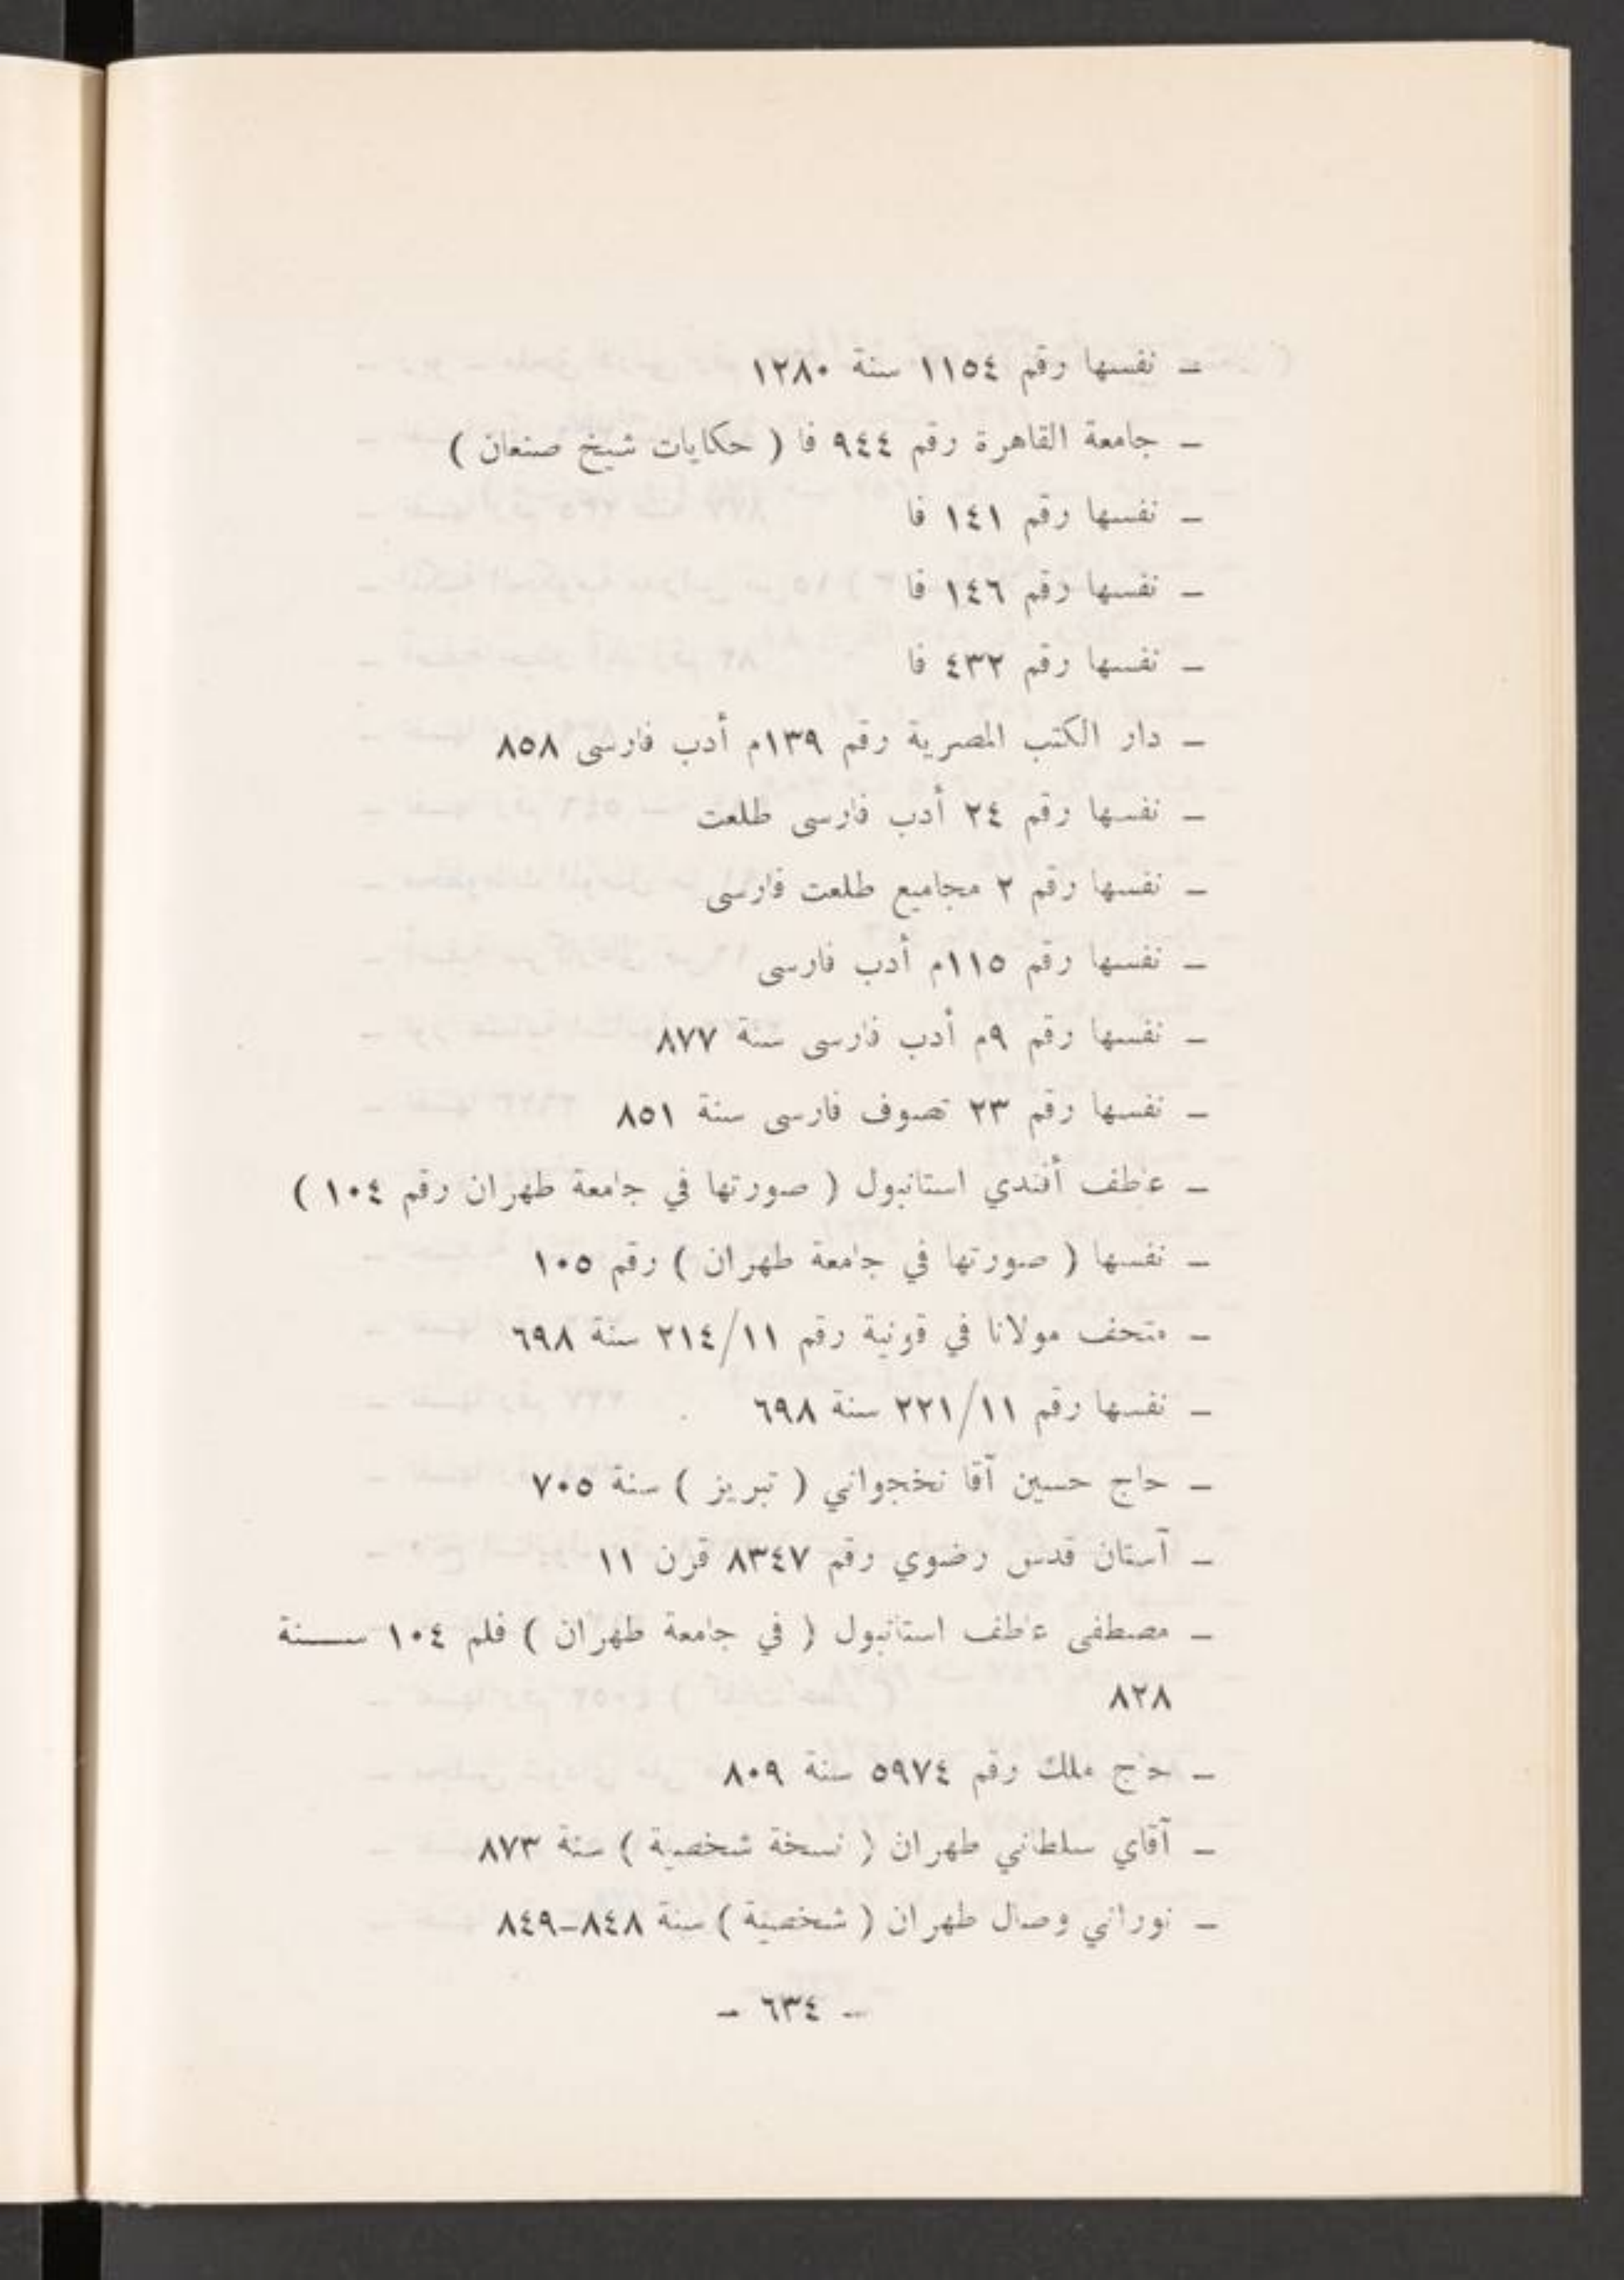 ـ نفسها رقم ١١٥٤ سنة ١٢٨٠
ـ جامعة القاهرة رقم ٩٤٤ فا ( حكايات شيخ صنعان )
ـ نفسها رقم ١٤١ فا
ـ نفسها رقم ١٤٦ فا
ـ نفسها رقم ٤٣٢ فا
ـ دار الكتب المصرية رقم ١٣٩م أدب فارسى ٨٥٨
ـ نفسها رقم ٢٤ أدب فارسى طلعت
ـ نفسها رقم ٢ مجاميع طلعت فارسى
ـ نفسها رقم ١١٥م أدب فارسى
ـ نفسها رقم ٩م أدب فارسى سنة ٨٧٧
ـ نفسها رقم ٢٣ تصوف فارسى سنة ٨٥١
ـ عاطف أفندي استانبول ( صورتها في جامعة طهران رقم ١٠٤ )
ـ نفسها ( صورتها في جامعة طهران ) رقم ١٠٥
ـ متحف مولانا في قونية رقم ٢١٤/١١ سنة ٦٩٨
ـ نفسها رقم ٢٢١/١١ سنة ٦٩٨
ـ حاج حسين آقا نخجواني ( تبريز ) سنة ٧٠٥
ـ آستان قدس رضوي رقم ٨٣٤٧ قرن ١١
ـ مصطفى عاطف استانبول ( في جامعة طهران ) فلم ١٠٤ ســـنة
٨٢٨
ـ حاج ملك رقم ٥٩٧٤ سنة ٨٠٩
ـ آقاي سلطاني طهران ( نسخة شخصية ) سنة ٨٧٣
ـ نوراني وصال طهران ( شخصية ) سنة ٨٤٨ـ٨٤٩
ـ ٦٣٤ ـ